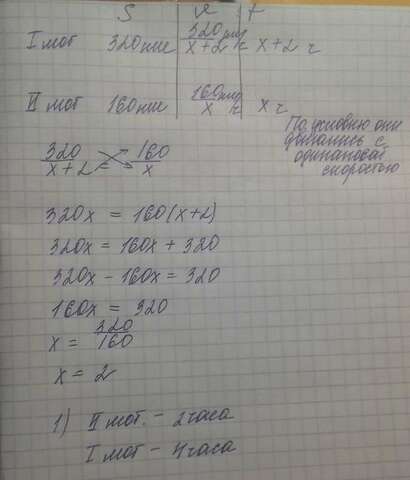 S v t
I мот 320 км 320 км/x+2 ч x+2 ч
II мот 160 км 160 км/x ч x ч
По условию они
двигались с
одинаковой
скоростью
320/x+2 = 160/x
320x = 160(x+2)
320x = 160x + 320
320x - 160x = 320
160x = 320
x = 320/160
x = 2
1) II мот. - 2 часа
I мот - 4 часа